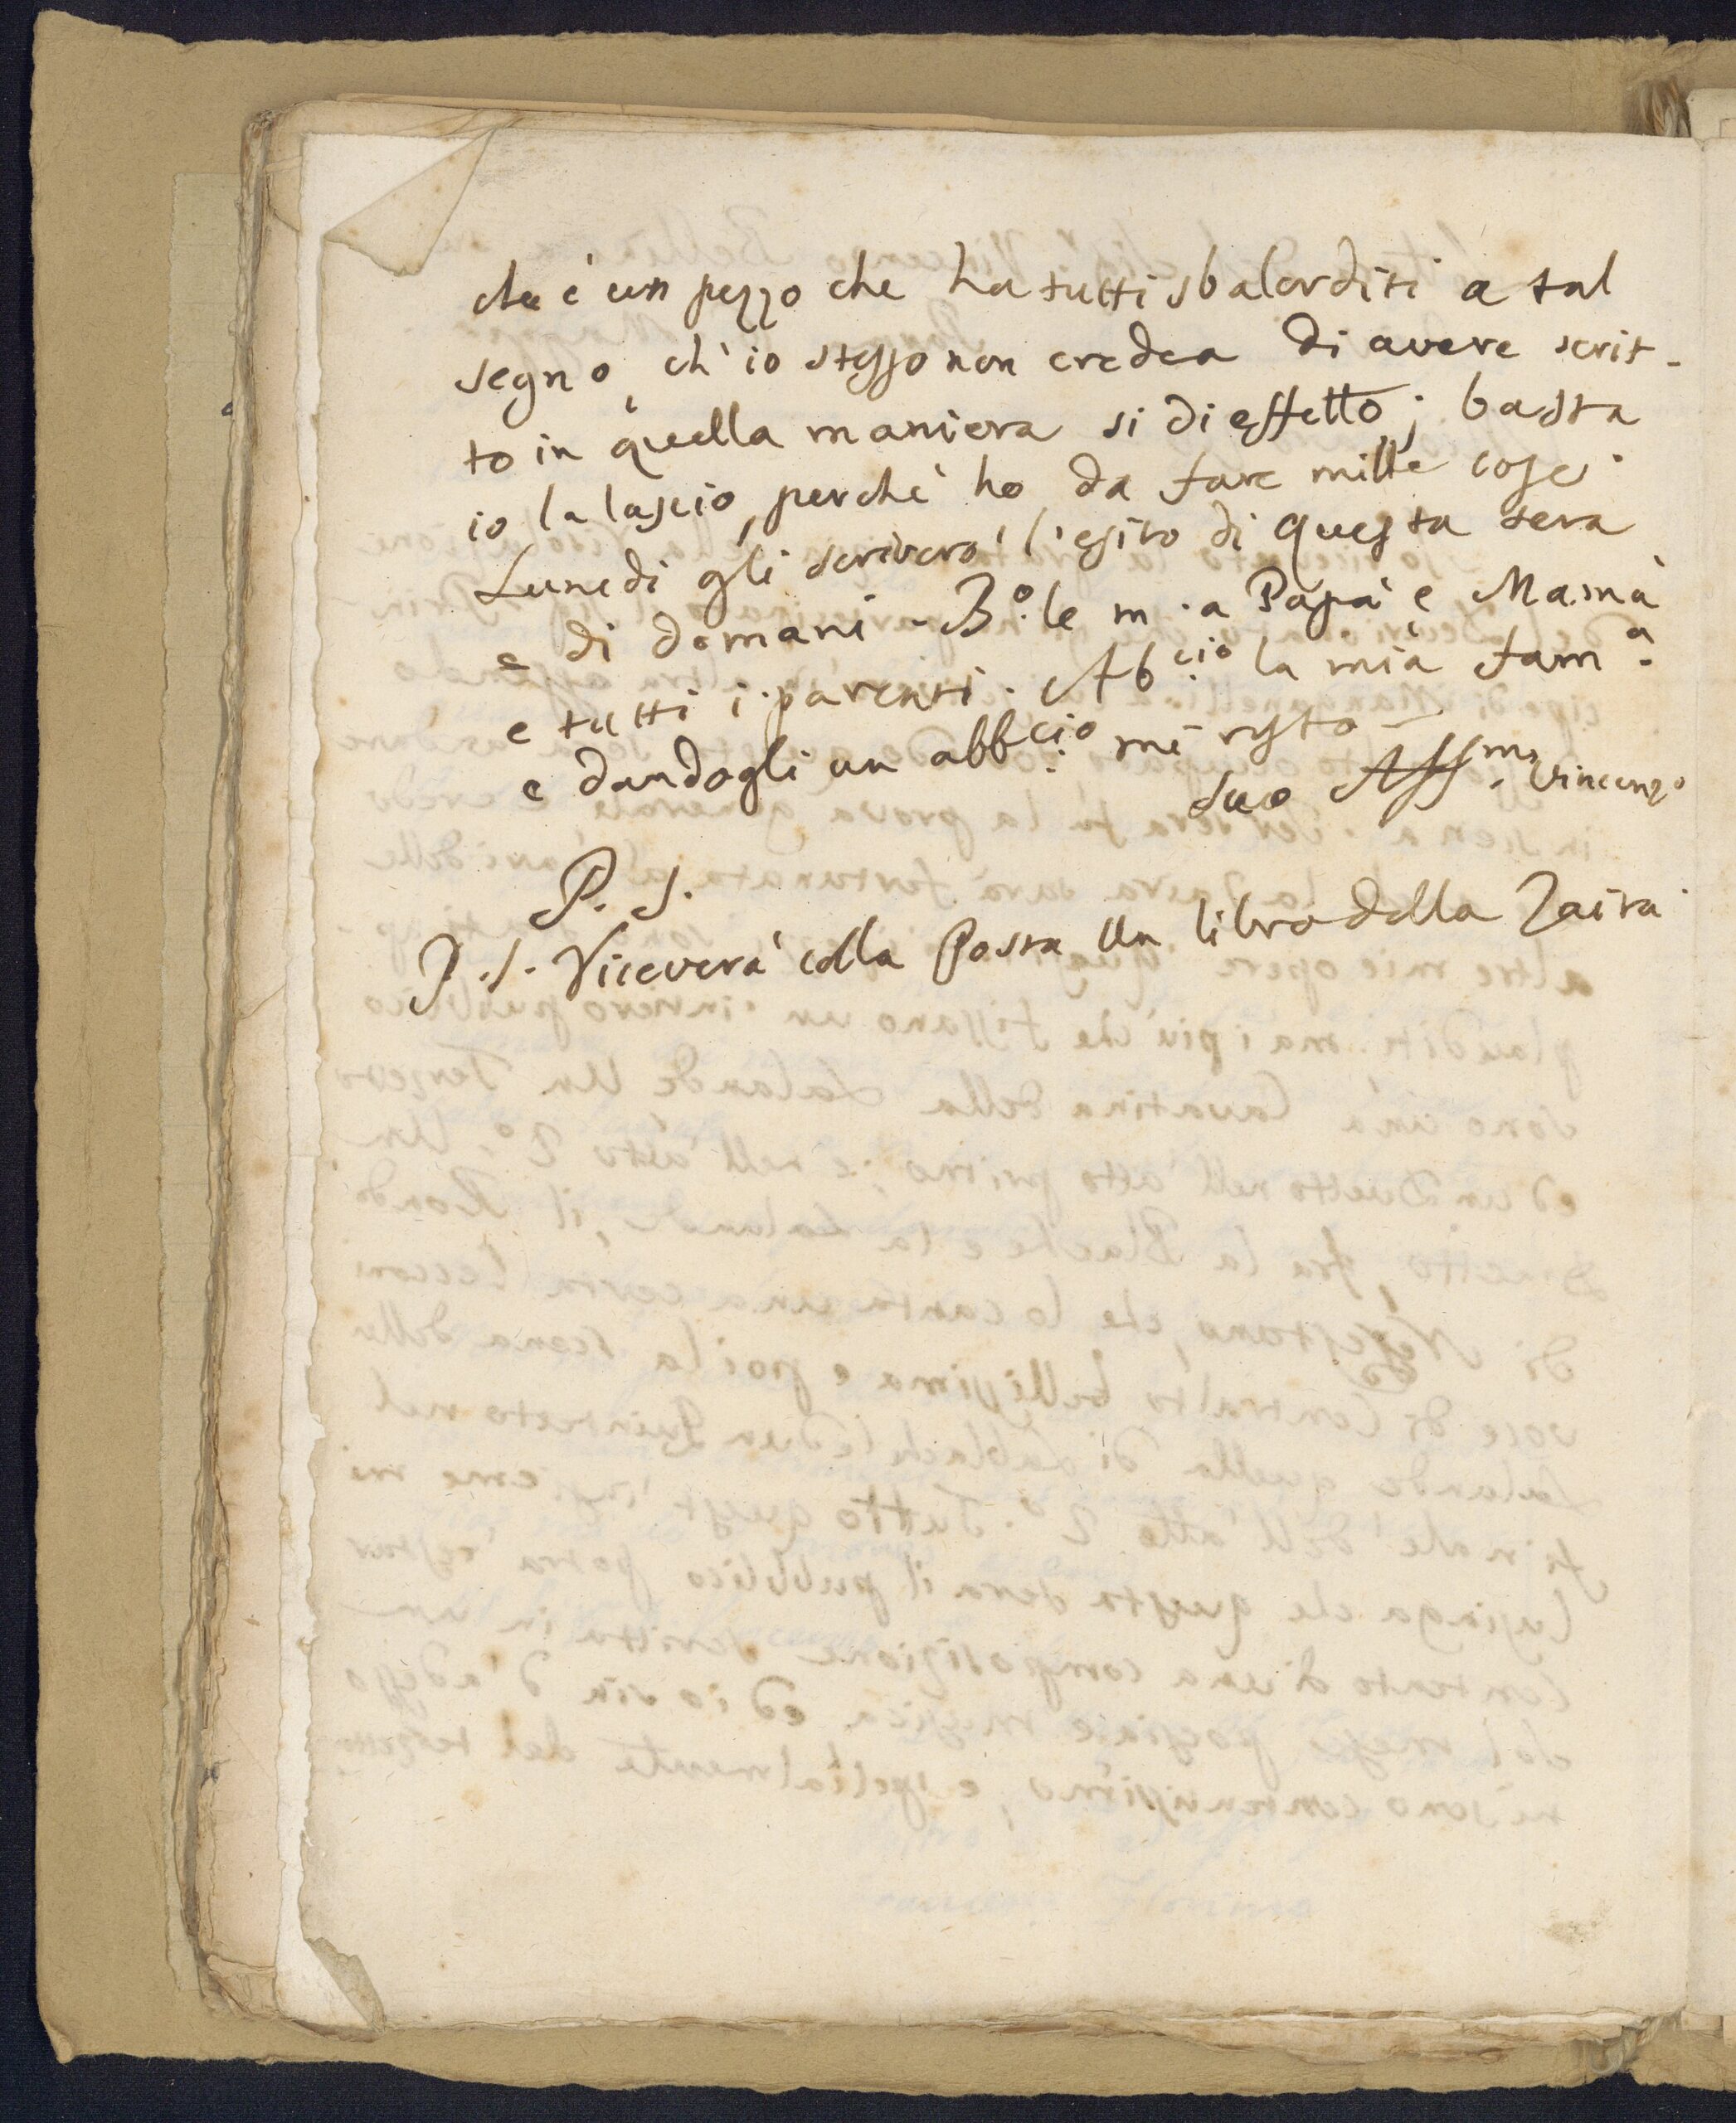 che è un pezzo che ha tutti sbalorditi a tal
segno, ch'io stesso non credea di avere scrit-
to in quella maniera si di effetto; basta
io la lascio, perchè ho da fare mille cose.
Lunedi gli scriverò l'esito di questa sera
e di domani - B.º le m. a Papà e Mamà
e tutti i parenti. Ab.cio la mia fam.a
e dandogli un abb.cio mi resto -
Suo Aff.mo Vincenzo
P. S.
P. S. Riceverà colla Posta Un libro della Zaira